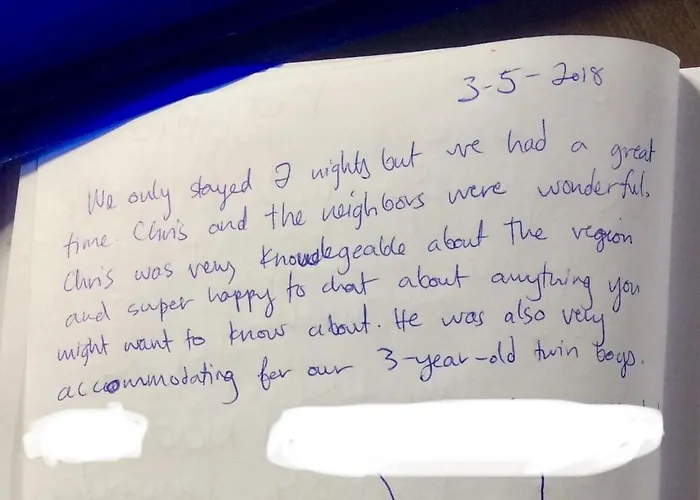 3-5-2018
We only stayed 2 nights but we had a great
time. Chris and the neighbors were wonderful.
Chris was very knowdegeable about the region
and super happy to chat about anything you
might want to know about. He was also very
accommodating for our 3-year-old twin boys.